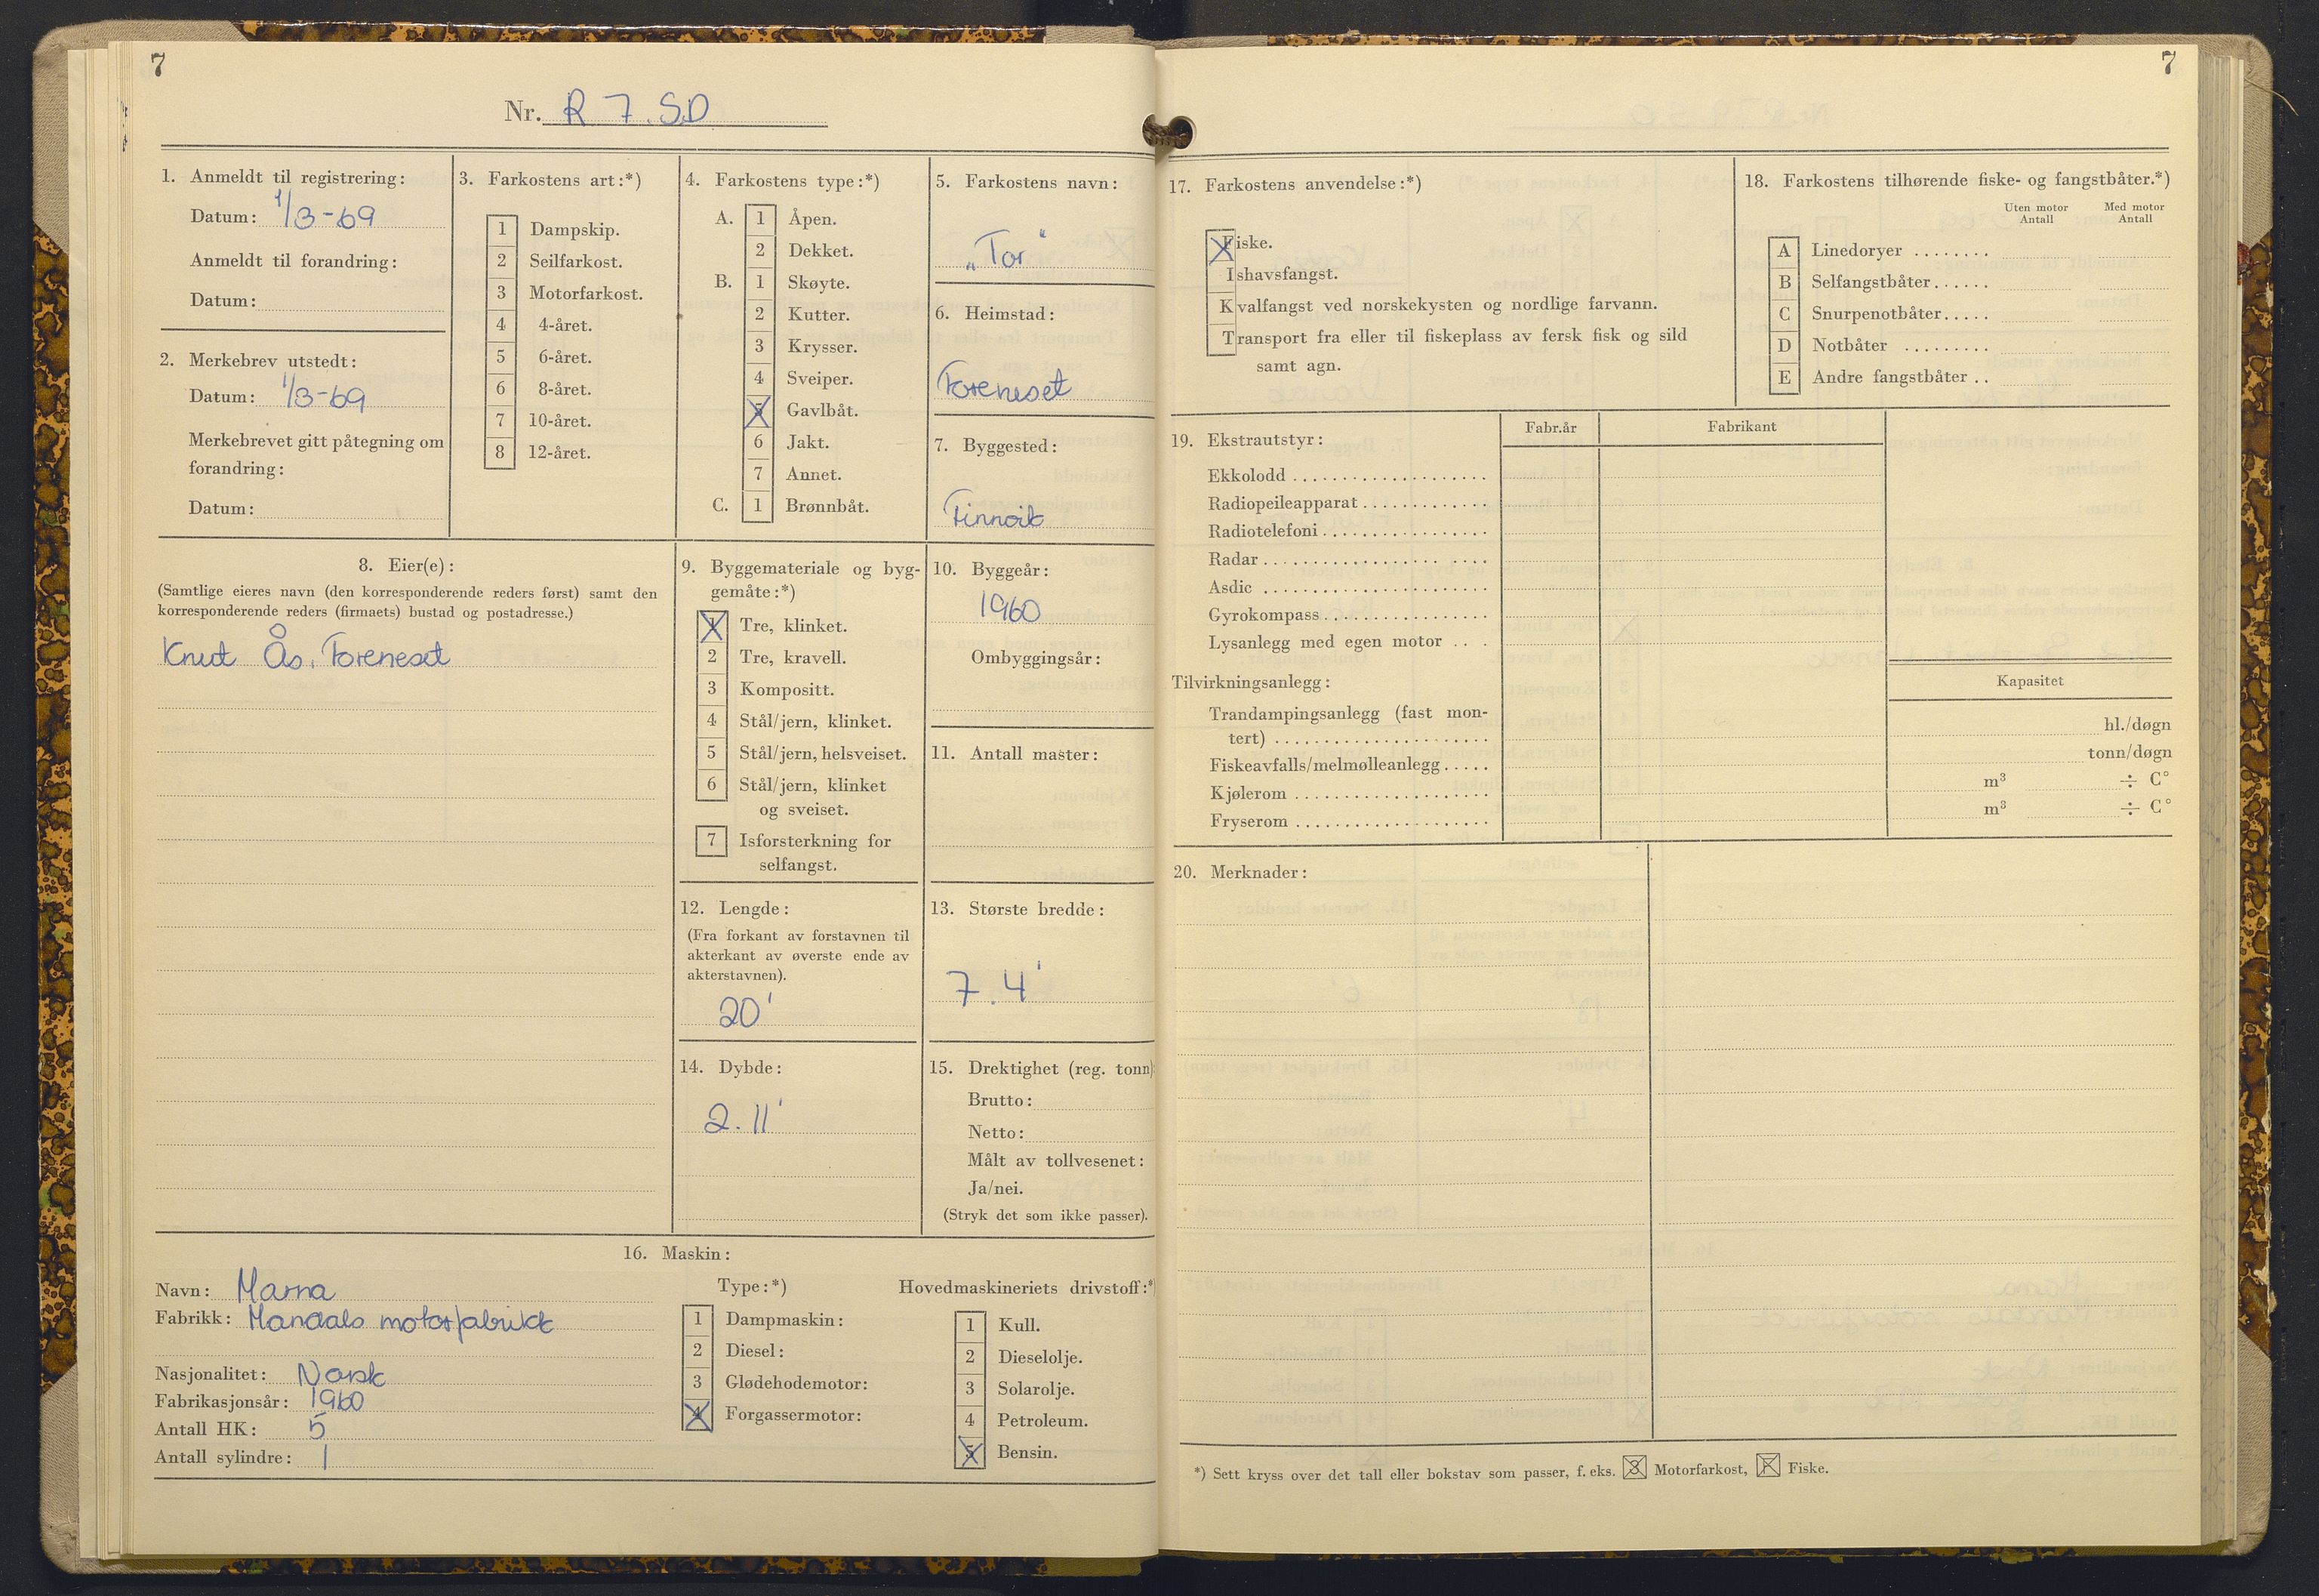 7
Nr. R 7. SD
1. Anmeldt til registrering:
Datum: 1/3-69
Anmeldt til forandring:
Datum:
2. Merkebrev utstedt:
Datum: 1/3-69
Merkebrevet gitt påtegning om
forandring:
Datum:
3. Farkostens art:*)
1 Dampskip.
2 Seilfarkost.
3 Motorfarkost.
4 4-året.
5 6-året.
6 8-året.
7 10-året.
8 12-året.
4. Farkostens type:*)
A. 1 Åpen.
2 Dekket.
B. 1 Skøyte.
2 Kutter.
3 Krysser.
4 Sveiper.
5 Gavlbåt.
6 Jakt.
7 Annet.
C. 1 Brønnbåt.
5. Farkostens navn:
„Tor"
6. Heimstad:
Foreneset
7. Byggested:
Finnvik
8. Eier(e):
(Samtlige eieres navn (den korresponderende reders først) samt den
korresponderende reders (firmaets) bustad og postadresse.)
Knut Ås, Foreneset
9. Byggemateriale og byg-
gemåte:*)
1 Tre, klinket.
2 Tre, kravell.
3 Kompositt.
4 Stål/jern, klinket.
5 Stål/jern, helsveiset.
6 Stål/jern, klinket
og sveiset.
7 Isforsterkning for
selfangst.
10. Byggeår:
1960
Ombyggingsår:
11. Antall master:
12. Lengde:
(Fra forkant av forstavnen til
akterkant av øverste ende av
akterstavnen).
20'
13. Største bredde:
7.4'
14. Dybde:
2.11'
15. Drektighet (reg. tonn):
Brutto:
Netto:
Målt av tollvesenet:
Ja/nei.
(Stryk det som ikke passer).
16. Maskin:
Navn: Marna
Fabrikk: Mandals motorfabrikk
Nasjonalitet: Norsk
Fabrikasjonsår: 1960
Antall HK: 5
Antall sylindre: 1
Type:*)
1 Dampmaskin:
2 Diesel:
3 Glødehodemotor:
4 Forgassermotor:
Hovedmaskineriets drivstoff:*)
1 Kull.
2 Dieselolje.
3 Solarolje.
4 Petroleum.
5 Bensin.
7
17. Farkostens anvendelse:*)
Fiske.
Ishavsfangst.
Kvalfangst ved norskekysten og nordlige farvann.
Transport fra eller til fiskeplass av fersk fisk og sild
samt agn.
18. Farkostens tilhørende fiske- og fangstbåter.*)
Uten motor Med motor
Antall Antall
A Linedoryer ........
B Selfangstbåter......
C Snurpenotbåter.....
D Notbåter .........
E Andre fangstbåter ..
19. Ekstrautstyr:
Fabr.år Fabrikant
Ekkolodd ....................
Radiopeileapparat.............
Radiotelefoni.................
Radar.......................
Asdic .......................
Gyrokompass.................
Lysanlegg med egen motor ...
Tilvirkningsanlegg:
Kapasitet
Trandampingsanlegg (fast mon-
tert) ...................... hl./døgn
Fiskeavfalls/melmølleanlegg..... tonn/døgn
Kjølerom .................... m³ ÷ C°
Fryserom .................... m³ ÷ C°
20. Merknader:
*) Sett kryss over det tall eller bokstav som passer, f. eks. 3 Motorfarkost, F Fiske.